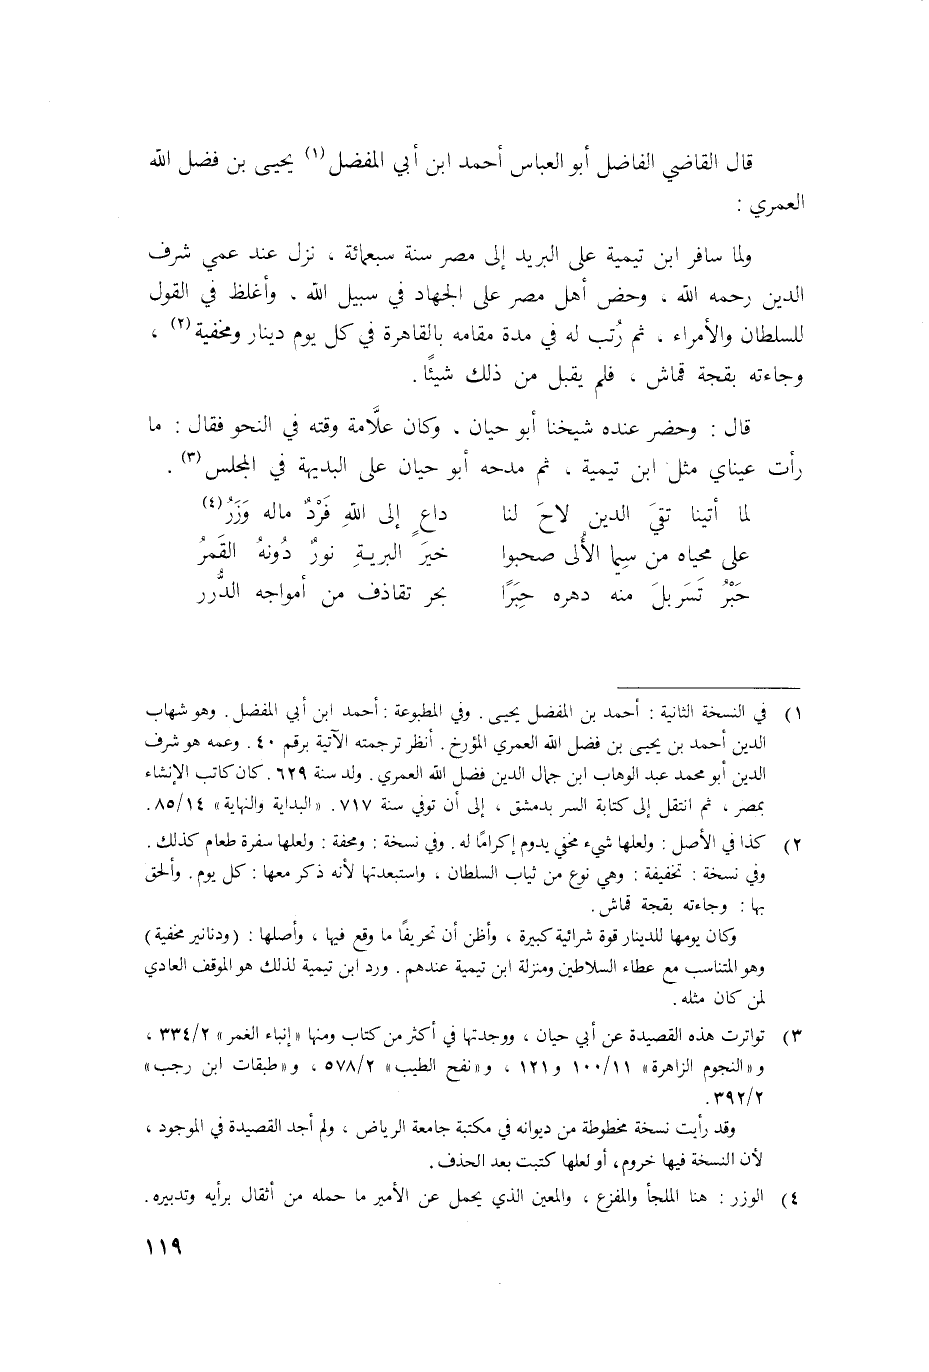 قال القاضي الفاضل أبو العباس أحمد ابن أبي المفضل (١) يحيى بن فضل الله
العمري :
ولما سافر ابن تيمية على البريد إلى مصر سنة سبعمائة ، نزل عند عمي شرف
الدين رحمه الله ، وحض أهل مصر على الجهاد في سبيل الله ، وأغلظ في القول
للسلطان والأمراء ، ثم رُتب له في مدة مقامه بالقاهرة في كل يوم دينار ومخفية (٢) ،
وجاءته بقجة قماش ، فلم يقبل من ذلك شيئًا .
قال : وحضر عنده شيخنا أبو حيان . وكان علَّامة وقته في النحو فقال : ما
رأت عيناي مثل ابن تيمية . ثم مدحه أبو حيان على البديهة في المجلس (٣) .
لما أتينا تقيَ الدين لاحَ لنا داعٍ إلى اللهِ فَرْدٌ ماله وَزَرُ (٤)
على محياه من سِيما الأُلى صحبوا خيرَ البريةِ نورٌ دُونهُ القَمرُ
حَبْرٌ تَسَربلَ منه دهره حِبَرًا بحر تقاذف من أمواجه الدُّرر
١) في النسخة الثانية : أحمد بن المفضل يحيى . وفي المطبوعة : أحمد ابن أبي المفضل . وهو شهاب
الدين أحمد بن يحيى بن فضل الله العمري المؤرخ . أنظر ترجمته الآتية برقم ٤٠ . وعمه هو شرف
الدين أبو محمد عبد الوهاب ابن جمال الدين فضل الله العمري . ولد سنة ٦٢٩ . كان كاتب الإنشاء
بمصر ، ثم انتقل إلى كتابة السر بدمشق ، إلى أن توفي سنة ٧١٧ . «البداية والنهاية» ٨٥/١٤ .
٢) كذا في الأصل : ولعلها شيء مخفي يدوم إكرامًا له . وفي نسخة : ومحفة : ولعلها سفرة طعام كذلك .
وفي نسخة : تخفيفة : وهي نوع من ثياب السلطان ، واستبعدتها لأنه ذكر معها : كل يوم . وألحق
بها : وجاءته بقجة قماش .
وكان يومها للدينار قوة شرائية كبيرة ، وأظن أن تحريفًا ما وقع فيها ، وأصلها : (ودنانير مخفية)
وهو المتناسب مع عطاء السلاطين ومنزلة ابن تيمية عندهم . ورد ابن تيمية لذلك هو الموقف العادي
لمن كان مثله .
٣) تواترت هذه القصيدة عن أبي حيان ، ووجدتها في أكثر من كتاب ومنها «إنباء الغمر» ٣٣٤/٢ ،
و«النجوم الزاهرة» ١٠٠/١١ و ١٢١ ، و«نفح الطيب» ٥٧٨/٢ ، و«طبقات ابن رجب»
٣٩٢/٢ .
وقد رأيت نسخة مخطوطة من ديوانه في مكتبة جامعة الرياض ، ولم أجد القصيدة في الموجود ،
لأن النسخة فيها خروم ، أو لعلها كتبت بعد الحذف .
٤) الوزر : هنا الملجأ والمفزع ، والمعين الذي يحمل عن الأمير ما حمله من أثقال برأيه وتدبيره .
١١٩